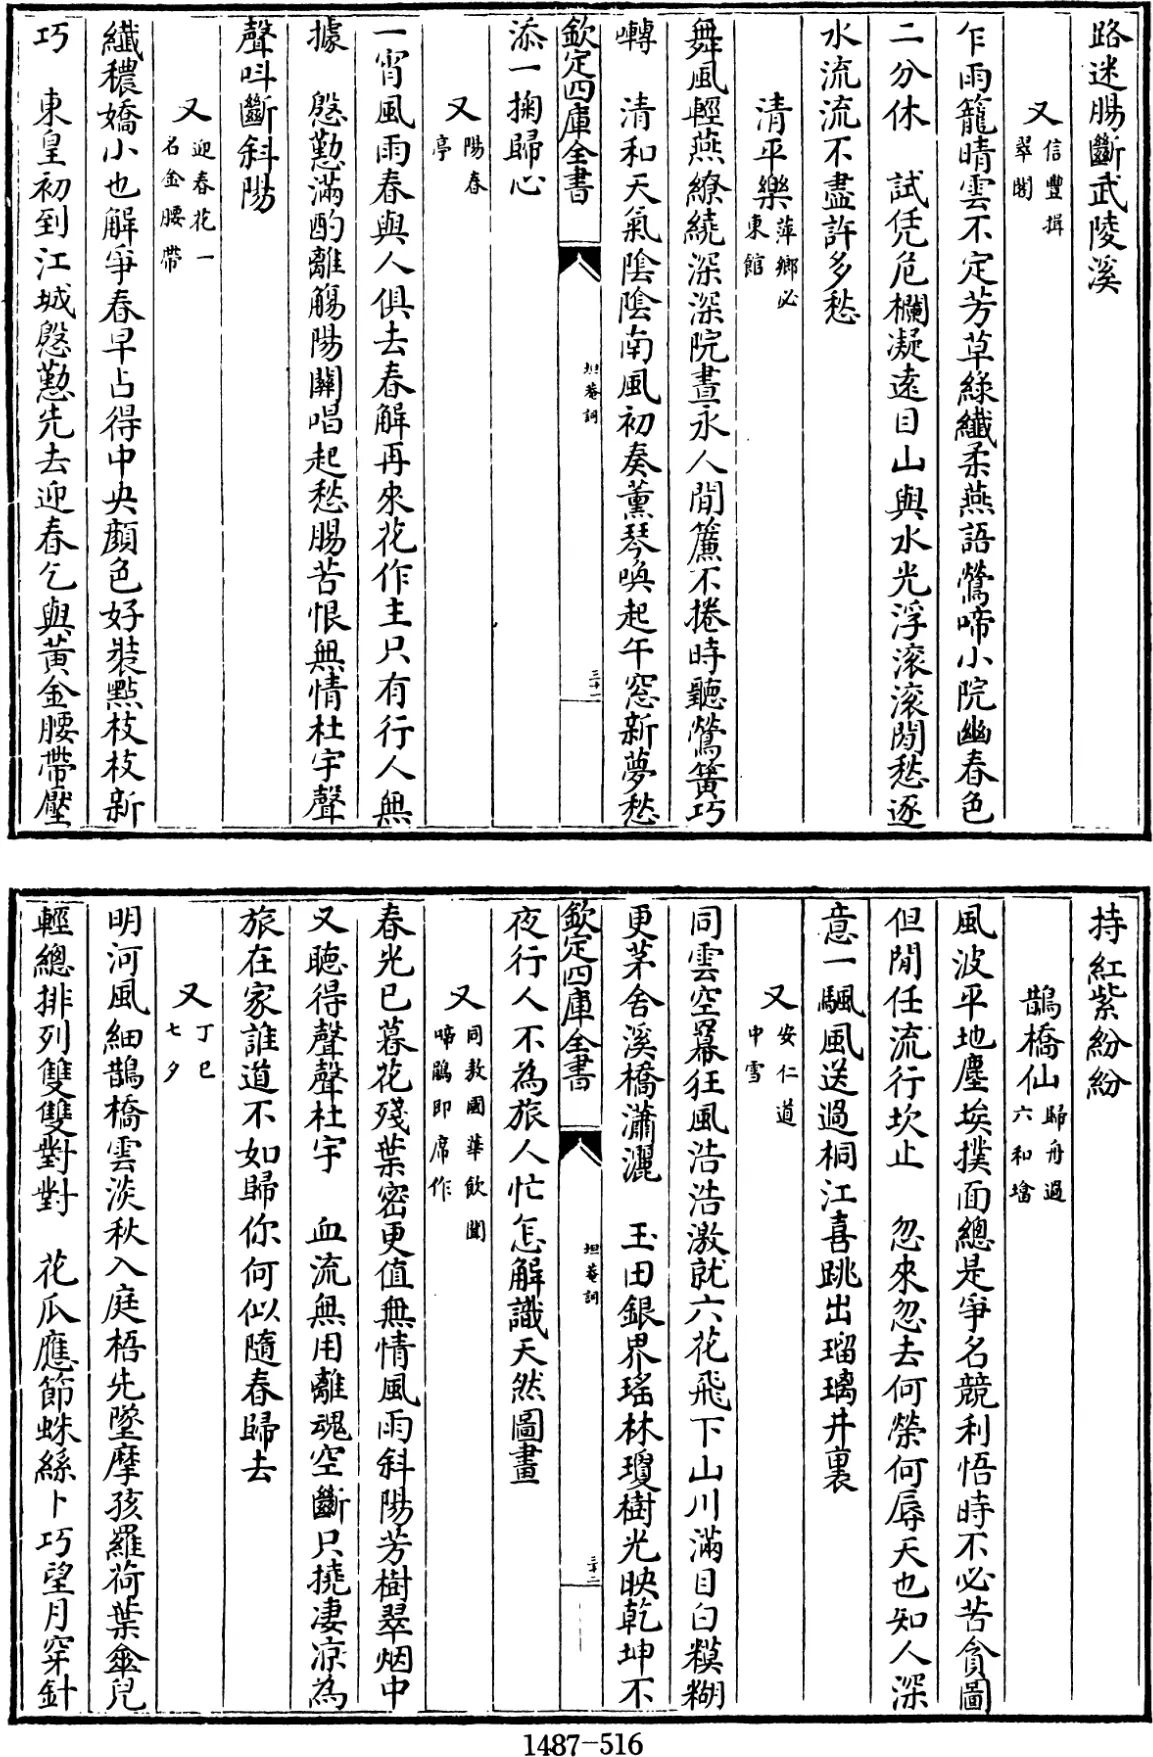 路迷腸斷武陵溪
又信豐揖翠閣
乍雨籠晴雲不定芳草綠纖柔燕語鶯啼小院幽春色
二分休　試凭危欄凝遠目山與水光浮滚滚閒愁逐
水流流不盡許多愁
清平樂萍鄉必東館
舞風輕燕繚繞深深院晝永人閒簾不捲時聽鶯簧巧
囀　清和天氣陰陰南風初奏薰琴喚起午窓新夢愁
欽定四庫全書
坦菴詞
三十二
添一掬歸心
又陽春亭
一宵風雨春與人俱去春解再來花作主只有行人無
據　慇懃滿酌離觴陽關唱起愁腸苦恨無情杜宇聲
聲呌斷斜陽
又迎春花一名金腰帶
纖穠嬌小也解爭春早占得中央顔色好裝點枝枝新
巧　東皇初到江城慇懃先去迎春乞與黃金腰帶壓
持紅紫紛紛
鵲橋仙歸舟過六和墖
風波平地塵埃撲面總是爭名競利悟時不必苦貪圖
但閒任流行坎止　忽來忽去何榮何辱天也知人深
意一颿風送過桐江喜跳出瑠璃井裏
又安仁道中雪
同雲空冪狂風浩浩激就六花飛下山川滿目白糢糊
更茅舍溪橋瀟灑　玉田銀界瑤林瓊樹光映乾坤不
欽定四庫全書
坦菴詞
夜行人不為旅人忙怎解識天然圖畫
又同敖國華飲聞啼鵑即席作
春光已暮花殘葉密更值無情風雨斜陽芳樹翠烟中
又聽得聲聲杜宇　血流無用離魂空斷只撓凄凉為
旅在家誰道不如歸你何似隨春歸去
又丁巳七夕
明河風細鵲橋雲淡秋入庭梧先墜摩孩羅荷葉傘兒
輕總排列雙雙對對　花瓜應節蛛絲卜巧望月穿針
1487-516